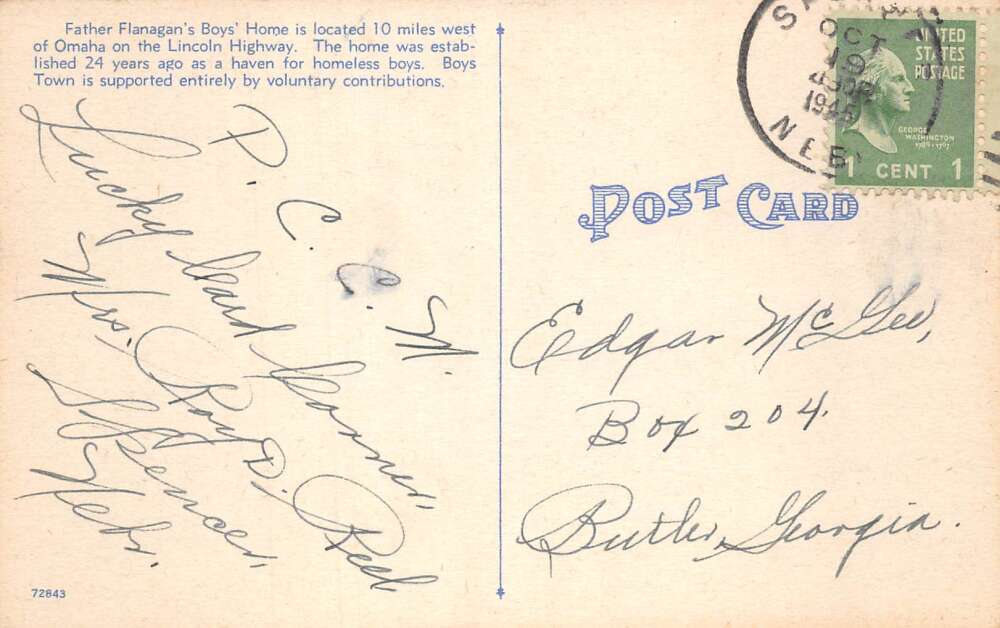 Father Flanagan's Boys' Home is located 10 miles west
of Omaha on the Lincoln Highway. The home was estab-
lished 24 years ago as a haven for homeless boys. Boys
Town is supported entirely by voluntary contributions.
P. C. C. N.
Lucky Card Corner,
Mrs. Roy D. Reed
Spencer,
Nebr.
72843
OCT
19
NEB.
UNITED
STATES
POSTAGE
GEORGE
WASHINGTON
1 CENT 1
POST CARD
Edgar McGee,
Box 204.
Butler, Georgia.